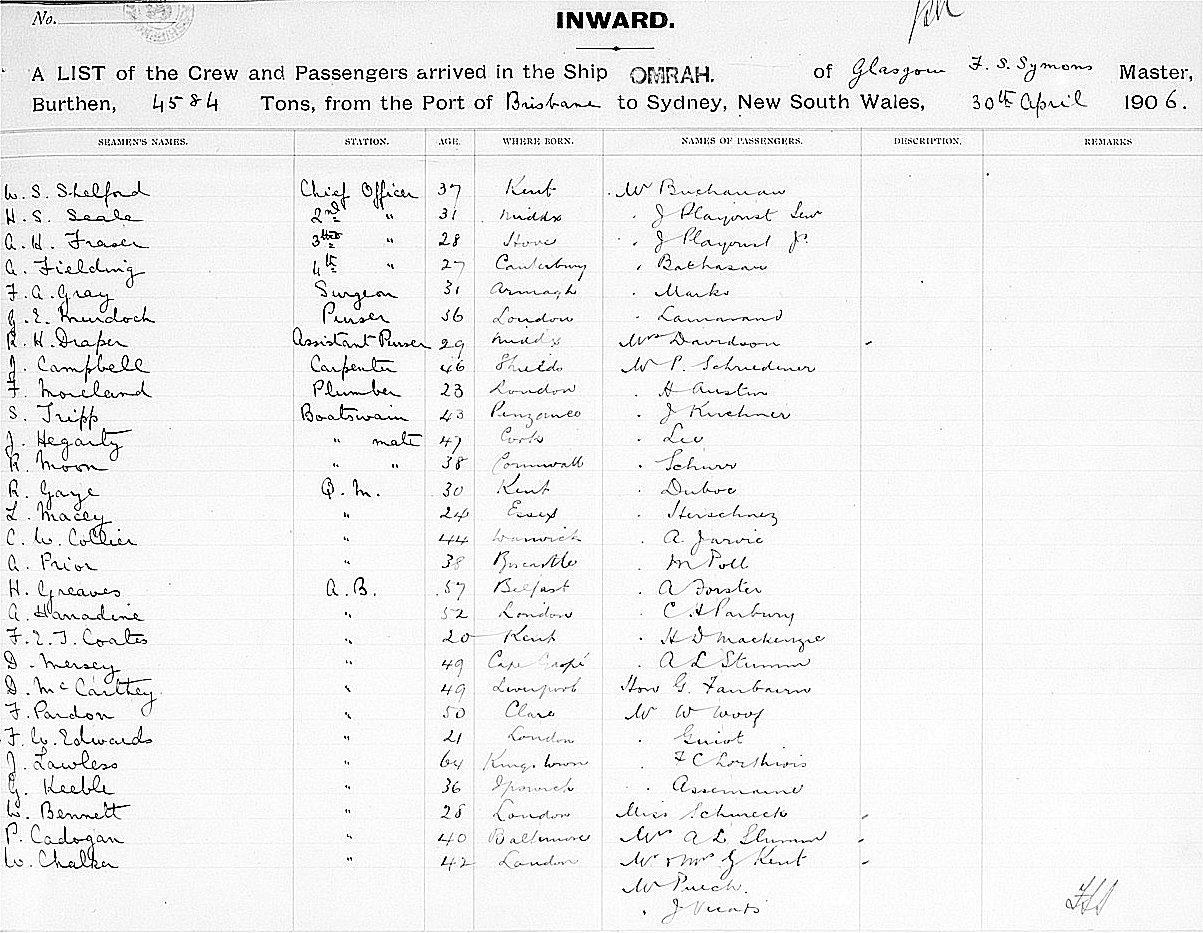 No.
INWARD.
A LIST of the Crew and Passengers arrived in the Ship OMRAH. of Glasgow F. S. Symons Master,
Burthen, 4584 Tons, from the Port of Brisbane to Sydney, New South Wales, 30th April 1906.
SEAMEN'S NAMES. STATION. AGE. WHERE BORN. NAMES OF PASSENGERS. DESCRIPTION. REMARKS
W. S. Shelford Chief Officer 37 Kent Mr Buchanan
H. S. Seale 2nd " 31 Middx J Playoust Sen
A. H. Fraser 3rd " 28 Hove J Playoust Jr.
A. Fielding 4th " 27 Canterbury
F. A. Gray Surgeon 31 Armagh Marks
G. E. Murdoch Purser 56 London
R. H. Draper Assistant Purser 29 Middx Mrs Davidson
J. Campbell Carpenter 46 Shields Mr P.
F. Moreland Plumber 23 London H Austin
S. Tripp Boatswain 43 Penzance J Kirchner
J. Hegarty " mate 47 Cork
R. Moon " " 38 Cornwall
R. Gaye Q. M. 30 Kent Duboc
L. Macey " 24 Essex
C. W. Collier " 44 Warwick A. Jarvie
A. Prior " 38 M Poll
H. Greaves A. B. 57 Belfast A Forster
A. Hanadine " 52 London C H Parbury
F. E. J. Coates " 20 Kent H D Mackenzie
D. Mersey " 49 A L Stumm
D. McCarthey " 49 Liverpool Hon G. Fairbairn
F. Pardon " 50 Clare Mr W Woof
F. W. Edwards " 21 London Guiot
J. Lawless " 64 Kingstown
G. Keeble " 36 Ipswich
W. Bennett " 28 London Miss
P. Cadogan " 40 Baltimore Mrs A L Stumm
W. Chalker " 42 London Mr & Mrs G Kent
Mr Puech.
J